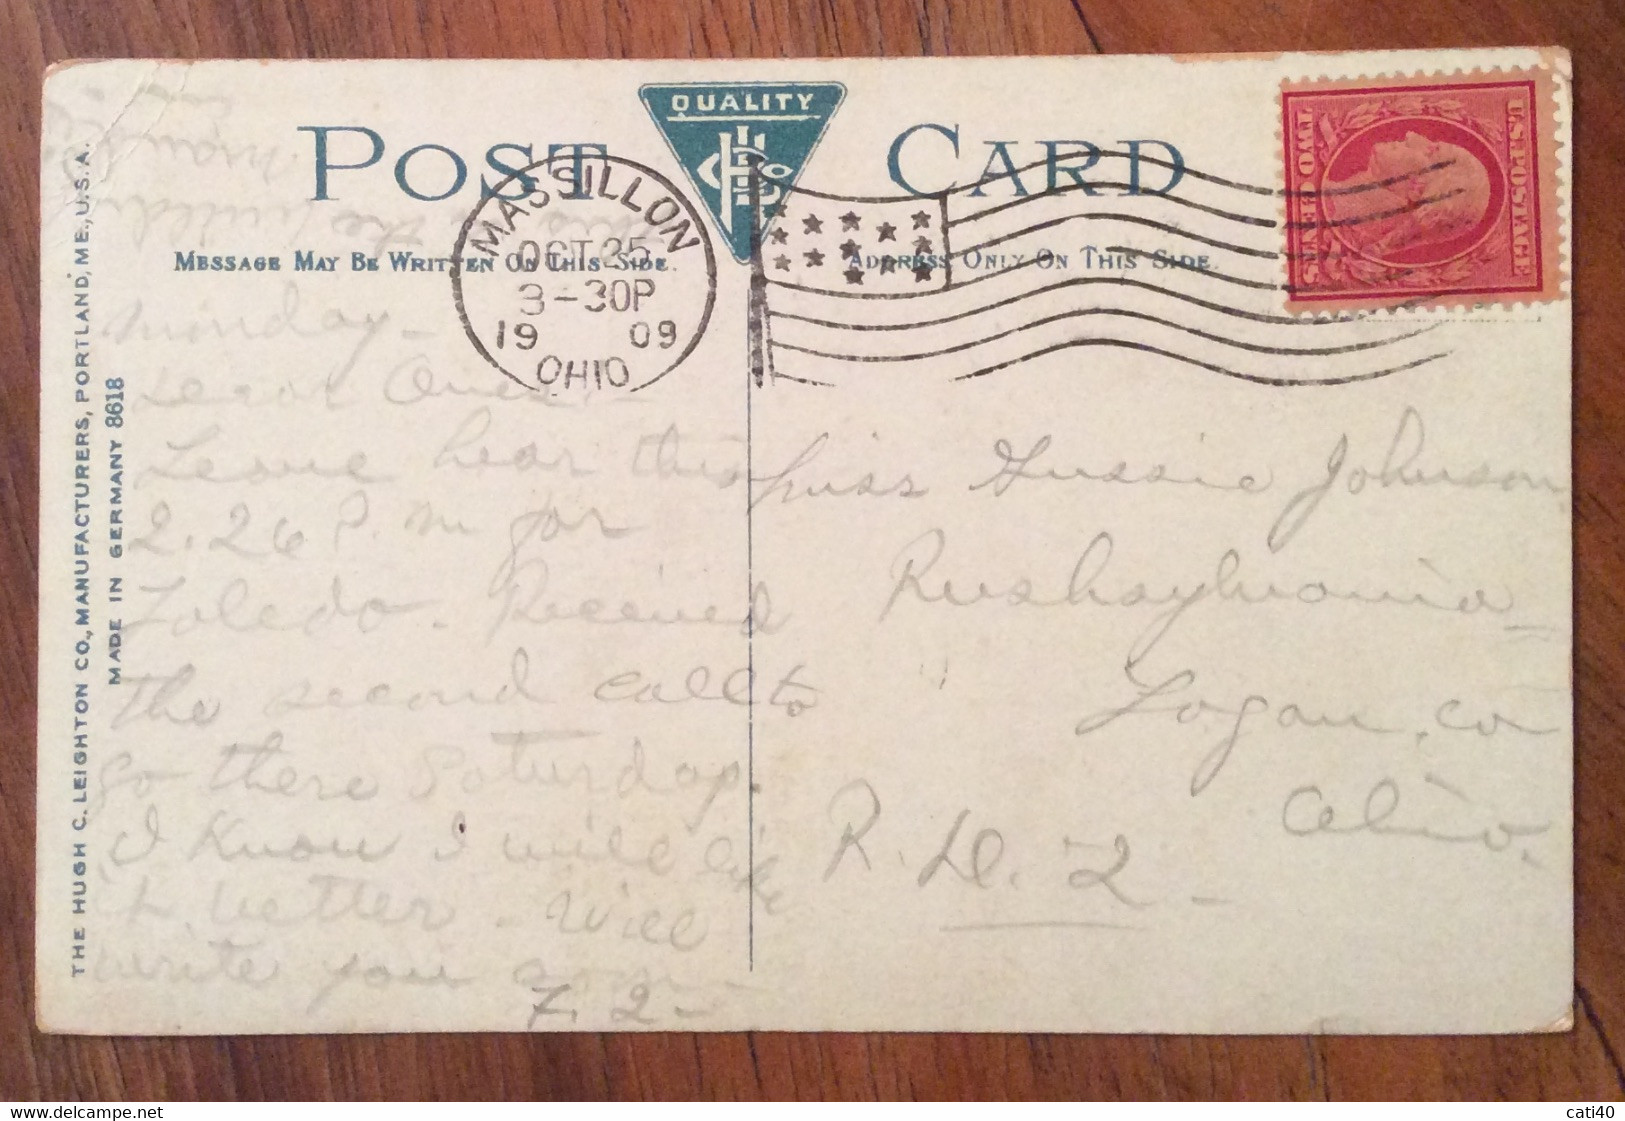 QUALITY
POST CARD
MESSAGE MAY BE WRITTEN ON THIS SIDE.
ADDRESS ONLY ON THIS SIDE.
MASSILLON
OCT 25
3-30P
19 09
OHIO
U.S. POSTAGE
TWO CENTS
THE HUGH C. LEIGHTON CO., MANUFACTURERS, PORTLAND, ME., U.S.A.
MADE IN GERMANY 8618
Dear One,
Leave hear this
2.26 P.m for
Toledo. Received
the second call to
go there Saturday.
I know I will like
it better. Will
write you soon
7.2
Miss Gussie Johnson
Rushsylvania
Logan, co
Ohio.
R. D. 2
cati40